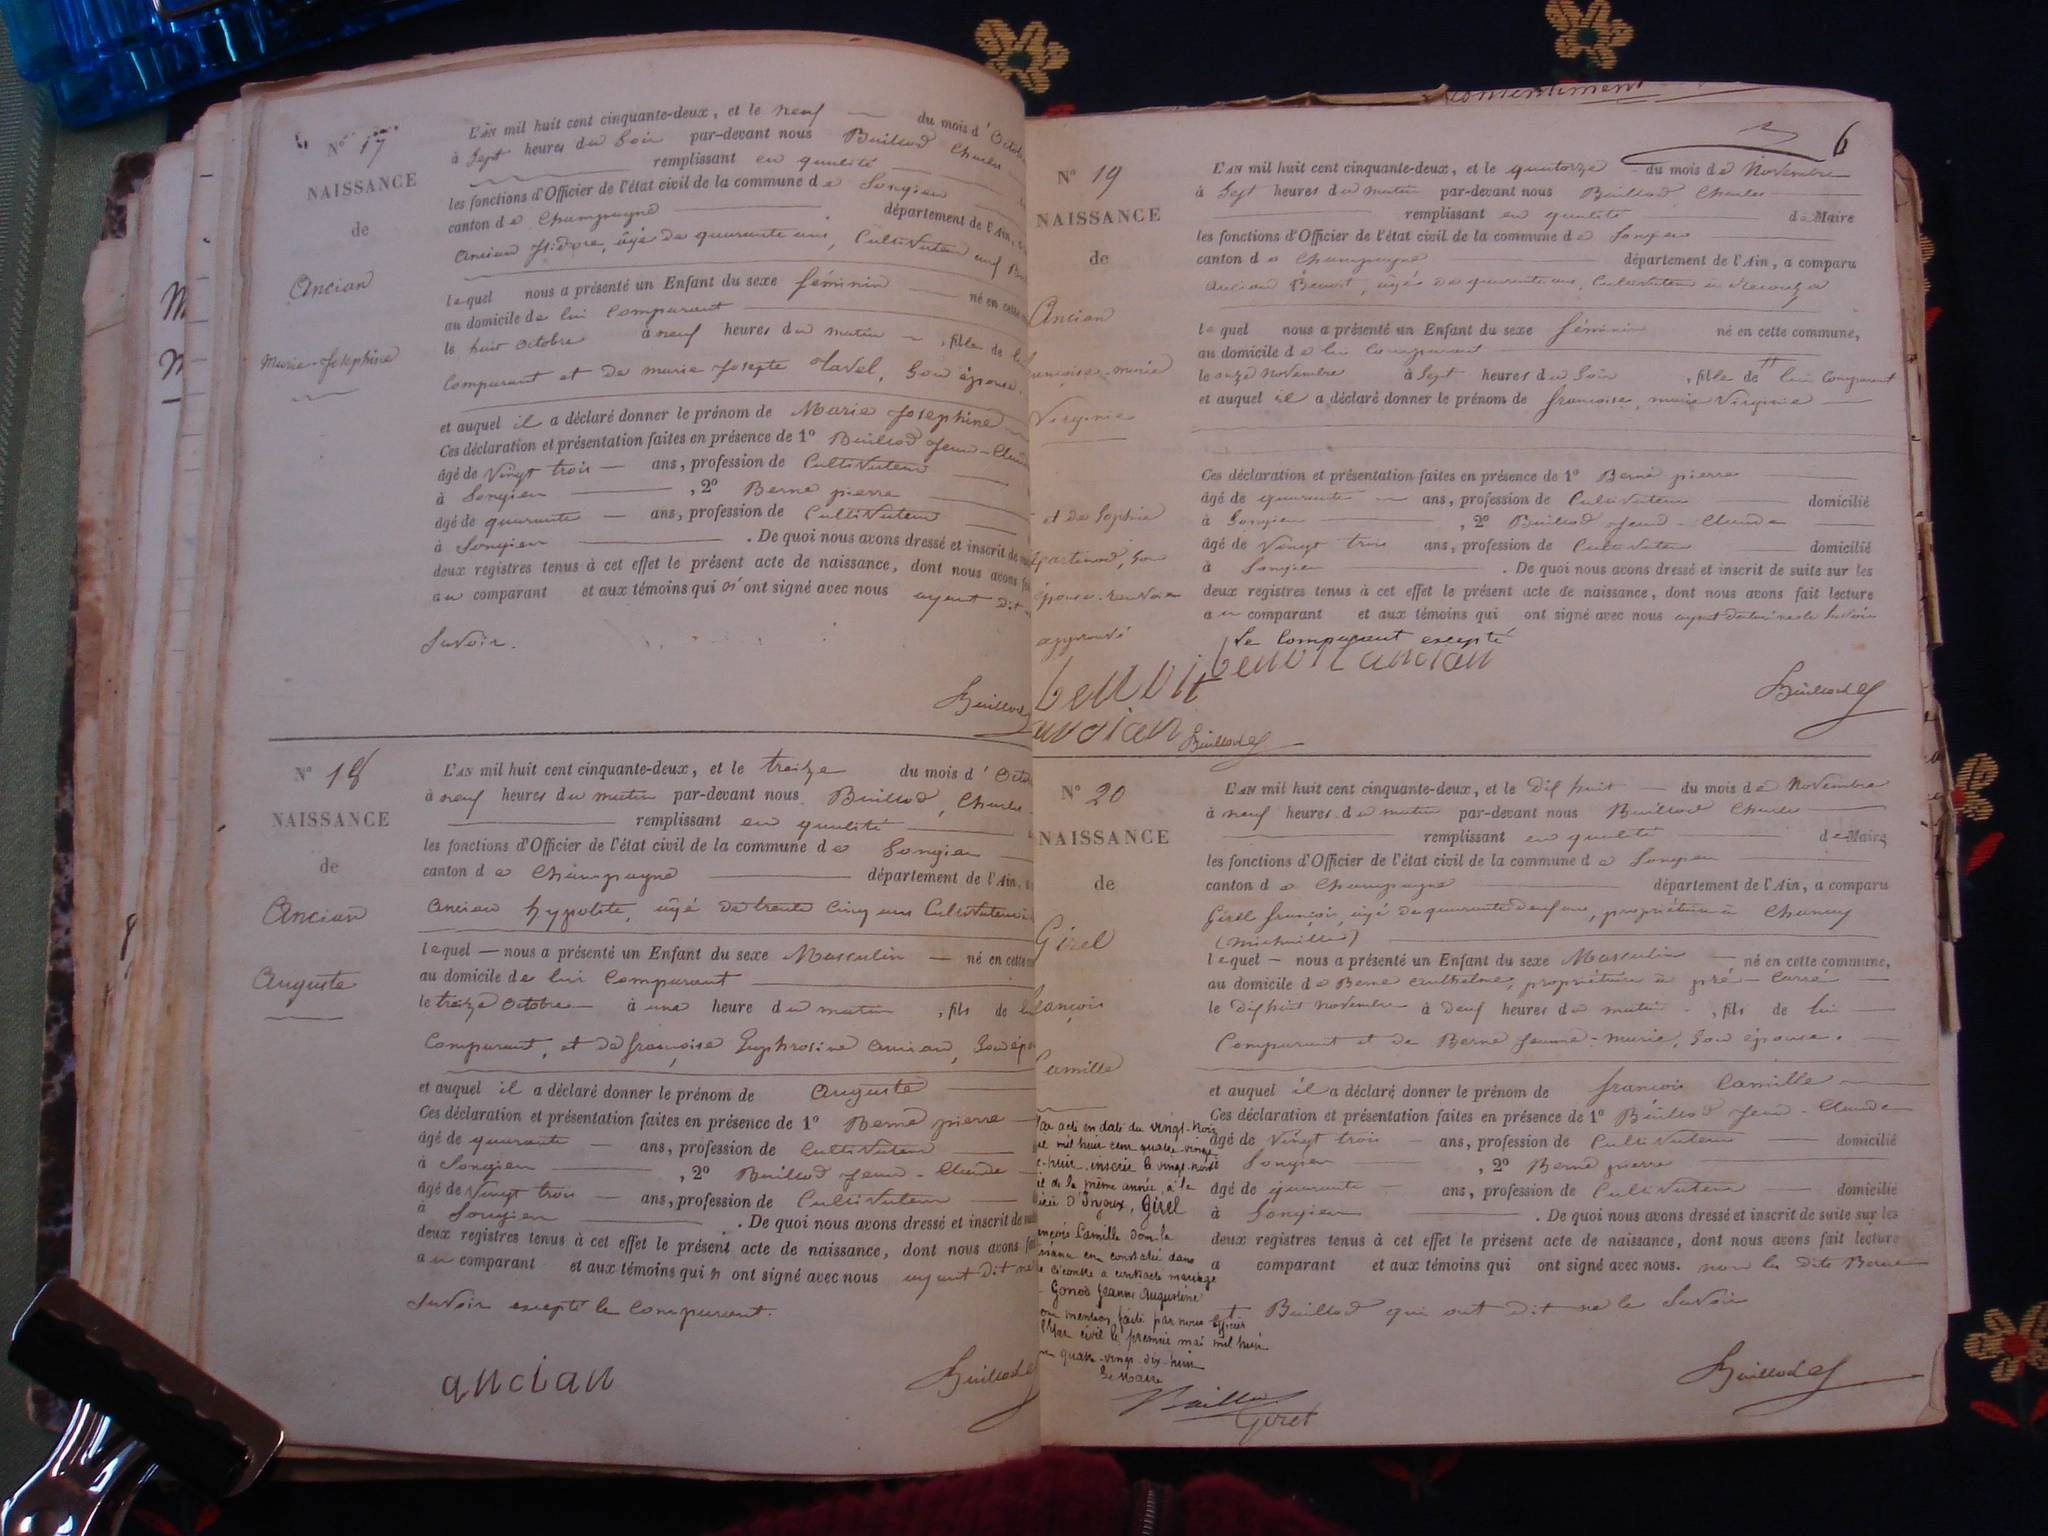 N° 17
NAISSANCE
de
Ancian
Marie-Josephine
L'AN mil huit cent cinquante-deux, et le neuf du mois d'Octob
à Sept heures du Soir par-devant nous Buillod Charles
remplissant en qualité
les fonctions d'Officier de l'état civil de la commune de Songieu
canton de Champagne département de l'Ain,
Ancian Isidore, âgé de quarante ans, Cultivateur
lequel nous a présenté un Enfant du sexe féminin né en cette
au domicile de lui Comparant
le huit Octobre à neuf heures du matin, fille de
Comparant et de marie Josepte Tavel, Son épouse
et auquel il a déclaré donner le prénom de Marie Josephine
Ces déclaration et présentation faites en présence de 1° Buillod Jean-Claude
âgé de Vingt trois ans, profession de Cultivateur
à Songieu, 2° Berne pierre
âgé de quarante ans, profession de Cultivateur
à Songieu. De quoi nous avons dressé et inscrit de
deux registres tenus à cet effet le présent acte de naissance, dont nous avons
au comparant et aux témoins qui n'ont signé avec nous ayant dit
Savoir.
Buillod
N° 18
NAISSANCE
de
Ancian
Auguste
L'AN mil huit cent cinquante-deux, et le treize du mois d'Octo
à neuf heures du matin par-devant nous Buillod, Charles
remplissant en qualité
les fonctions d'Officier de l'état civil de la commune de Songieu
canton de Champagne département de l'Ain,
Ancian hyppolite, âgé de trente cinq ans Cultivateur
lequel nous a présenté un Enfant du sexe Masculin né en cette
au domicile de lui Comparant
le treize Octobre à une heure du matin, fils de
Comparant, et de françoise Euphrosine Ancian, Son
et auquel il a déclaré donner le prénom de Auguste
Ces déclaration et présentation faites en présence de 1° Berne pierre
âgé de quarante ans, profession de Cultivateur
à Songieu, 2° Buillod Jean-Claude
âgé de Vingt trois ans, profession de Cultivateur
à Songieu. De quoi nous avons dressé et inscrit de
deux registres tenus à cet effet le présent acte de naissance, dont nous avons
au comparant et aux témoins qui n'ont signé avec nous ayant dit ne
Savoir excepté le Comparant.
ancian
Buillod
consentement
6
N° 19
NAISSANCE
de
Ancian
ançoise-marie
Virginie
L'AN mil huit cent cinquante-deux, et le quatorze du mois de Novembre
à Sept heures du matin par-devant nous Buillod, Charles
remplissant en qualité de Maire
les fonctions d'Officier de l'état civil de la commune de Songieu
canton de Champagne département de l'Ain, a comparu
Ancian Benoit, âgé de quarante ans, Cultivateur à
lequel nous a présenté un Enfant du sexe féminin né en cette commune,
au domicile de lui Comparant
le onze Novembre à Sept heures du Soir, fille de lui Comparant
et auquel il a déclaré donner le prénom de françoise, marie Virginie
Ces déclaration et présentation faites en présence de 1° Berne pierre
âgé de quarante ans, profession de Cultivateur domicilié
à Songieu, 2° Buillod Jean-Claude
âgé de Vingt trois ans, profession de Cultivateur domicilié
à Songieu. De quoi nous avons dressé et inscrit de suite sur les
deux registres tenus à cet effet le présent acte de naissance, dont nous avons fait lecture
au comparant et aux témoins qui ont signé avec nous ayant dit ne le Savoir
Le Comparant excepté
et de Sophie
Son
épouse. renvoi
approuvé
benoit ancian
benoit
ancian
Buillod
Buillod
N° 20
NAISSANCE
de
Girel
rançois
Camille
L'AN mil huit cent cinquante-deux, et le dix huit du mois de Novembre
à neuf heures du matin par-devant nous Buillod Charles
remplissant en qualité de Maire
les fonctions d'Officier de l'état civil de la commune de Songieu
canton de Champagne département de l'Ain, a comparu
Girel françois, âgé de quarante deux ans, propriétaire à Chanay
(michaille)
lequel nous a présenté un Enfant du sexe Masculin né en cette commune,
au domicile de Berne Anthelme, propriétaire à pré-Carré
le dix huit novembre à deux heures du matin, fils de lui
Comparant et de Berne Jeanne-marie, Son épouse.
et auquel il a déclaré donner le prénom de françois Camille
Ces déclaration et présentation faites en présence de 1° Buillod Jean-Claude
âgé de Vingt trois ans, profession de Cultivateur domicilié
à Songieu, 2° Berne pierre
âgé de quarante ans, profession de Cultivateur domicilié
à Songieu. De quoi nous avons dressé et inscrit de suite sur les
deux registres tenus à cet effet le présent acte de naissance, dont nous avons fait lecture
a comparant et aux témoins qui ont signé avec nous. non les dits Berne
et Buillod qui ont dit ne le Savoir
ar acte en date du vingt-trois
mil huit cent quatre-vingt
-huit inscrit le vingt-trois
de la même année, à la
d'Injoux, Girel
ançois Camille dont la
est constatée dans
ci contre a contracté mariage
Gonod Jeanne Augustine
mention faite par nous officier
l'état civil le premier mai mil huit
quatre-vingt-dix-huit
Le Maire
Girel
Buillod